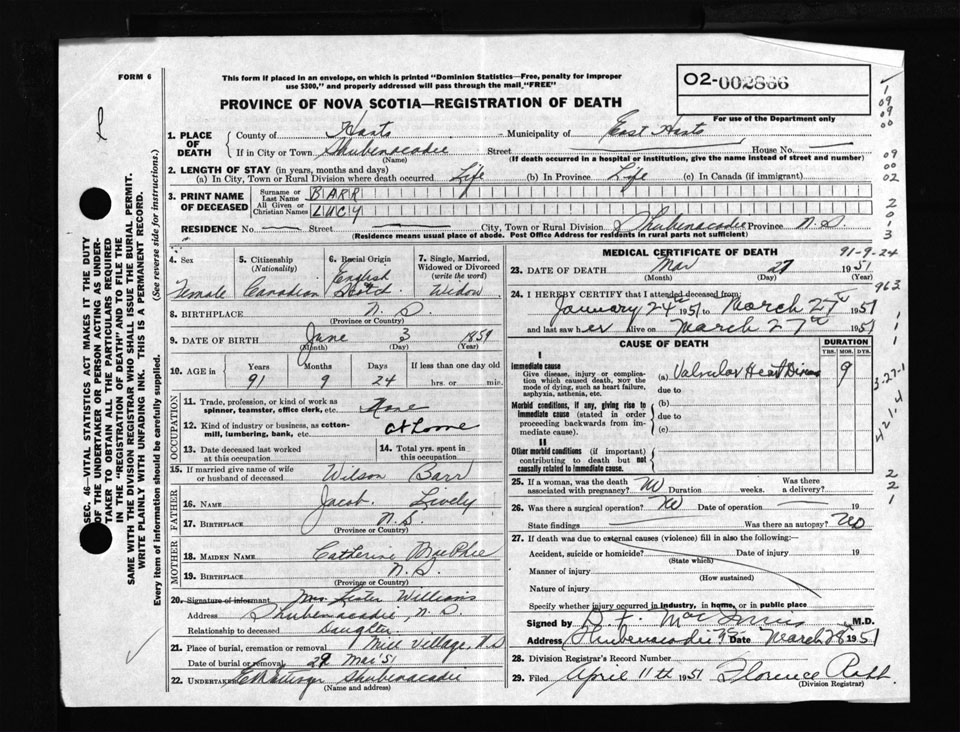 FORM 6
This form if placed in an envelope, on which is printed "Dominion Statistics—Free, penalty for improper
use $300," and properly addressed will pass through the mail "FREE"
PROVINCE OF NOVA SCOTIA—REGISTRATION OF DEATH
02-002866
For use of the Department only
1. PLACE OF DEATH
County of Hants - Municipality of East Hants
If in City or Town Shubenacadie Street House No.
(Name) (If death occurred in a hospital or institution, give the name instead of street and number)
2. LENGTH OF STAY (in years, months and days)
(a) In City, Town or Rural Division where death occurred Life (b) In Province Life (c) In Canada (if immigrant)
3. PRINT NAME OF DECEASED
Surname or Last Name BARR
All Given or Christian Names LUCY
RESIDENCE No. Street City, Town or Rural Division Shubenacadie Province N.S.
(Residence means usual place of abode. Post Office Address for residents in rural parts not sufficient)
4. Sex Female
5. Citizenship (Nationality) Canadian
6. Racial Origin English Scotch
7. Single, Married, Widowed or Divorced (write the word) Widow
8. BIRTHPLACE N.S.
(Province or Country)
9. DATE OF BIRTH June 3 1859
(Month) (Day) (Year)
10. AGE in Years Months Days If less than one day
91 9 24 hrs. or min.
OCCUPATION
11. Trade, profession, or kind of work as spinner, teamster, office clerk, etc. None
12. Kind of industry or business, as cotton-mill, lumbering, bank, etc. at home
13. Date deceased last worked at this occupation
14. Total yrs. spent in this occupation
15. If married give name of wife or husband of deceased Wilson Barr
FATHER
16. NAME Jacob Lively
17. BIRTHPLACE N.S.
(Province or Country)
MOTHER
18. MAIDEN NAME Catherine MacPhee
19. BIRTHPLACE N.S.
(Province or Country)
20. Signature of informant Mrs Lester Williams
Address Shubenacadie, N.S.
Relationship to deceased Daughter
21. Place of burial, cremation or removal Mill Village, N.S
Date of burial or removal 29 Mar '51
22. Undertaker Shubenacadie
(Name and address)
MEDICAL CERTIFICATE OF DEATH
91-9-24
23. DATE OF DEATH Mar 27 1951
(Month) (Day) (Year)
24. I HEREBY CERTIFY that I attended deceased from:
January 24th 1951 to March 27th 1951
and last saw her alive on March 27th 1951
CAUSE OF DEATH
DURATION
YRS. MOS. DYS.
I
Immediate cause
Give disease, injury or complication which caused death, nor the mode of dying, such as heart failure, asphyxia, asthenia, etc.
(a) Valvular Heart Disease 9
due to
Morbid conditions, if any, giving rise to immediate cause (stated in order proceeding backwards from immediate cause).
(b)
due to
(c)
II
Other morbid conditions (if important) contributing to death but not causally related to immediate cause.
25. If a woman, was the death associated with pregnancy? No Duration weeks. Was there a delivery?
26. Was there a surgical operation? No Date of operation 19
State findings Was there an autopsy? No
27. If death was due to external causes (violence) fill in also the following:
Accident, suicide or homicide? Date of injury 19
(State which)
Manner of injury
(How sustained)
Nature of injury
Specify whether injury occurred in industry, in home, or in public place
Signed by D. F. MacInnis M.D.
Address Shubenacadie Date March 28 1951
28. Division Registrar's Record Number
29. Filed April 11th 1951 Florence Rabb
(Division Registrar)
SEC. 46—VITAL STATISTICS ACT MAKES IT THE DUTY
OF THE UNDERTAKER OR PERSON ACTING AS UNDER-
TAKER TO OBTAIN ALL THE PARTICULARS REQUIRED
IN THE "REGISTRATION OF DEATH" AND TO FILE THE
SAME WITH THE DIVISION REGISTRAR WHO SHALL ISSUE THE BURIAL PERMIT.
WRITE PLAINLY WITH UNFADING INK. THIS IS A PERMANENT RECORD.
Every item of information should be carefully supplied. (See reverse side for instructions.)
09
09
00
09
00
02
2
0
1
3
963
1
1
1
3-27-1
421.4
2
2
1